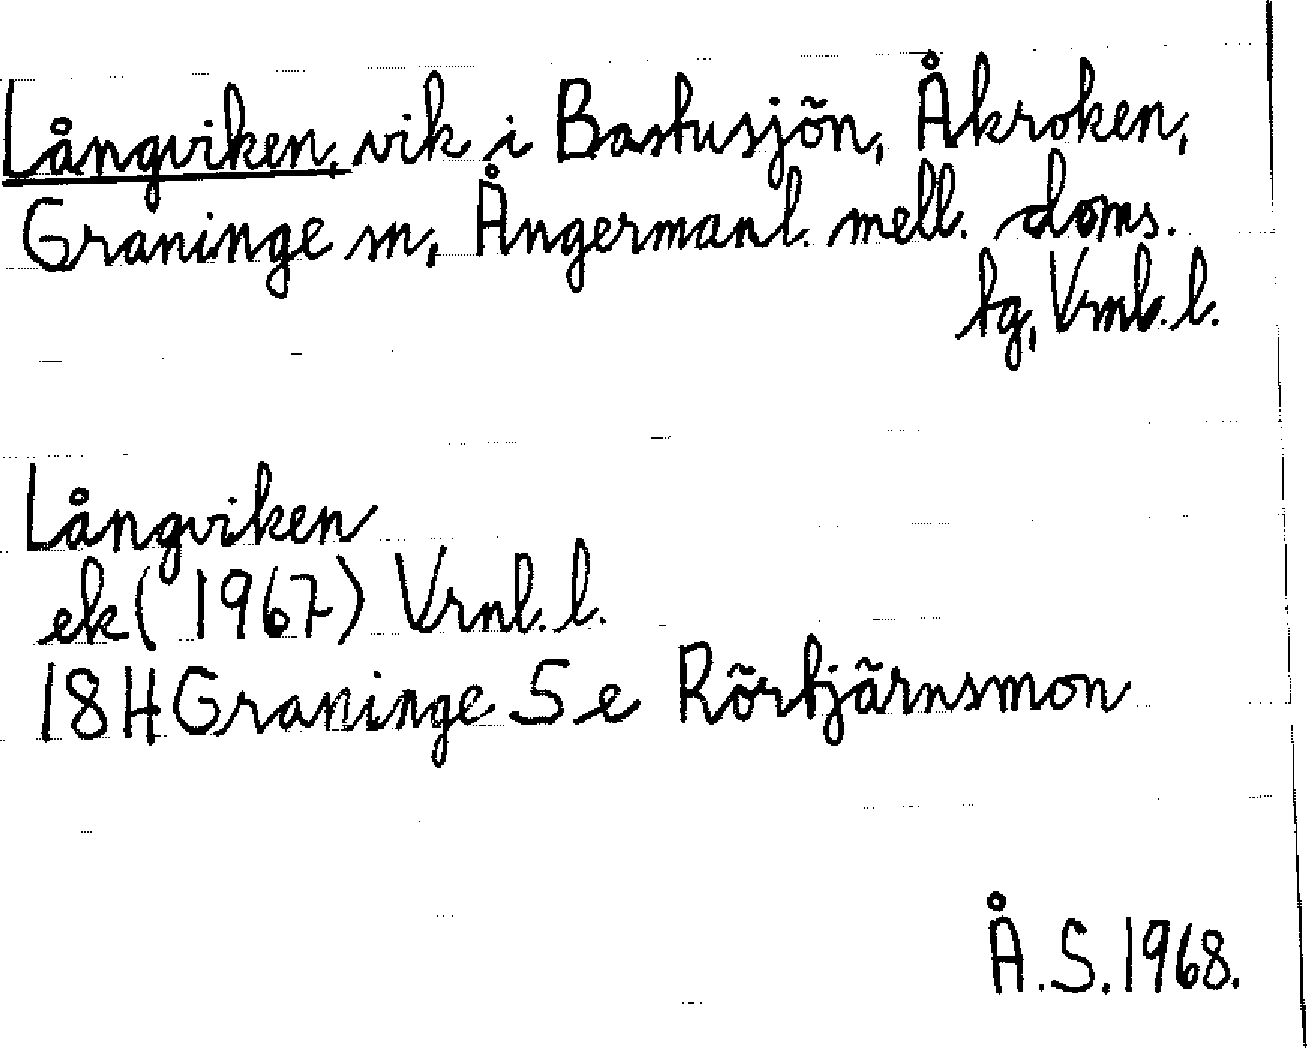 Långviken, vik i Bastusjön, Åkroken,
Graninge sn, Ångermanl. mell. doms.
tg, Vrnl. l.
Långviken
ek (1967) Vrnl. l.
18H Graninge 5 e Rörtjärnsmon
Å.S. 1968.